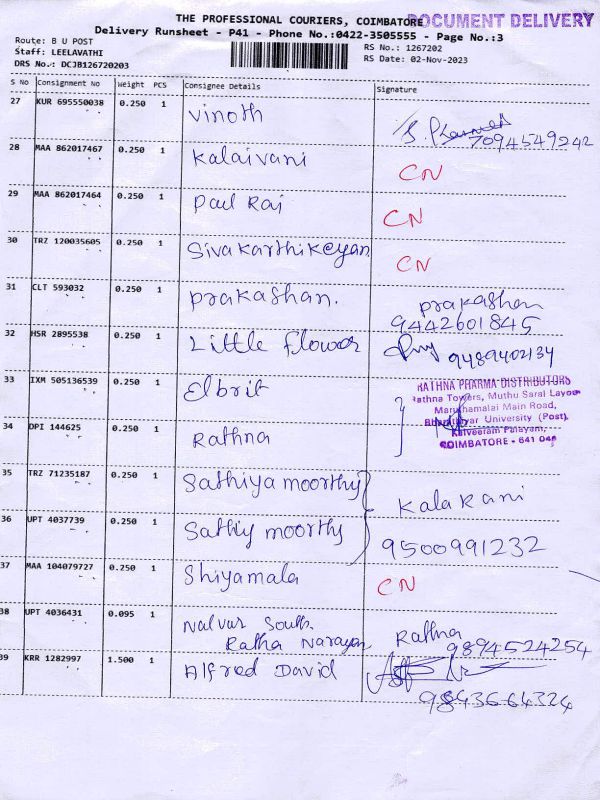 THE PROFESSIONAL COURIERS, COIMBATORE
DOCUMENT DELIVERY
Delivery Runsheet - P41 - Phone No.:0422-3505555 - Page No.:3
Route: B U POST
RS No.: 1267202
Staff: LEELAVATHI
RS Date: 02-Nov-2023
DRS No.: DCJB126720203
S No Consignment No Weight PCS Consignee Details Signature
27 KUR 695550038 0.250 1 Vinoth
7094549242
28 MAA 862017466 0.250 1 Kalaivani CN
29 MAA 862017464 0.250 1 Paul Raj CN
30 TRZ 120035605 0.250 1 Sivakarthikeyan CN
31 CLT 593032 0.250 1 prakashan. prakashan
9442601845
32 HSR 2895538 0.250 1 Little flower 9489402134
33 IXM 505136539 0.250 1 Elbrit
RATHNA PHARMA DISTRIBUTORS
Rathna Towers, Muthu Saral Layout
Maruthamalai Main Road,
Bharathiyar University (Post),
Kalveeram Palayam,
COIMBATORE - 641 046
34 DPI 144625 0.250 1 Rathna
35 TRZ 71235187 0.250 1 Sathiyamoorthy Kalakani
36 UPT 4037739 0.250 1 Sathiy moorthy 9500991232
37 MAA 104079727 0.250 1 Shiyamala CN
38 UPT 4036431 0.095 1 Nalvar South
Ratha Narayan Rathna
9894524254
39 KRR 1282997 1.500 1 Alfred David
9843664324